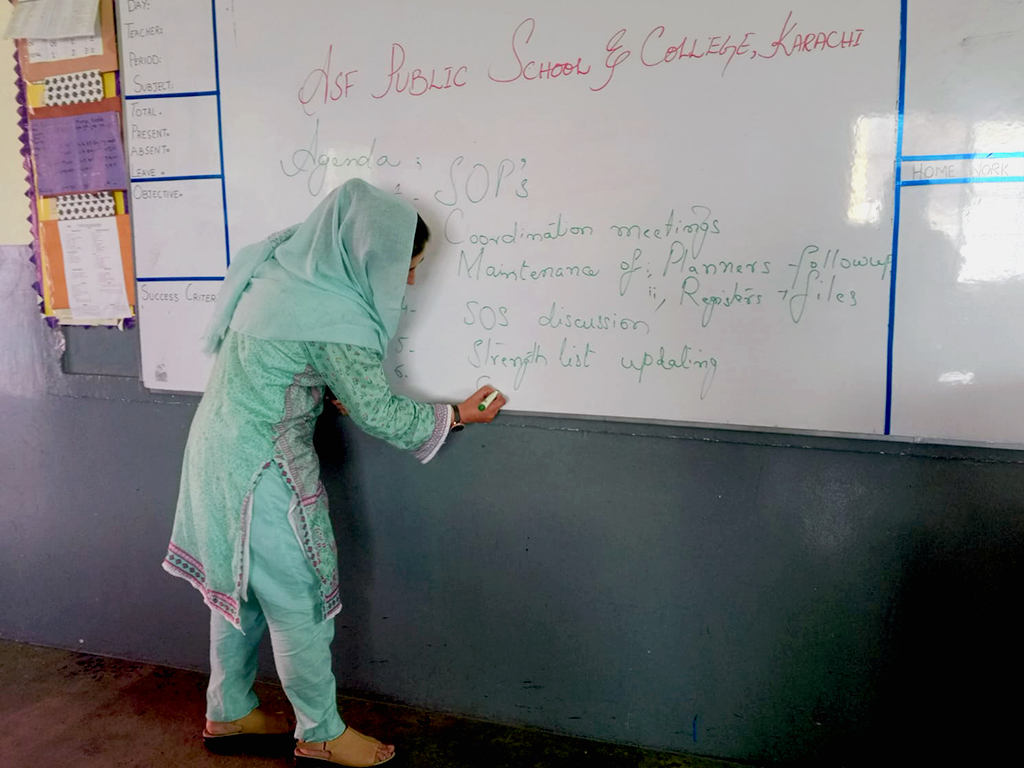 DAY:
TEACHER:
PERIOD:
SUBJECT:
TOTAL-
PRESENT-
ABSENT-
LEAVE-
OBJECTIVE-
SUCCESS CRITER
ASF PUBLIC SCHOOL & COLLEGE, KARACHI
Agenda :
1- SOP's
Coordination meetings
Maintenance of: i, Planners - followup
ii, Registers + files
4- SOS discussion
5- Strength list updating
6-
HOME WORK